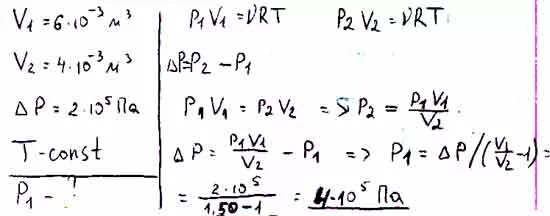 V₁ = 6·10⁻³ м³
V₂ = 4·10⁻³ м³
ΔP = 2·10⁵ Па
T-const
P₁ - ?
P₁V₁ = νRT    P₂V₂ = νRT
ΔP = P₂ - P₁
P₁V₁ = P₂V₂ => P₂ = P₁V₁/V₂.
ΔP = P₁V₁/V₂ - P₁ => P₁ = ΔP/(V₁/V₂ - 1) =
= 2·10⁵/1,50-1 = 4·10⁵ Па